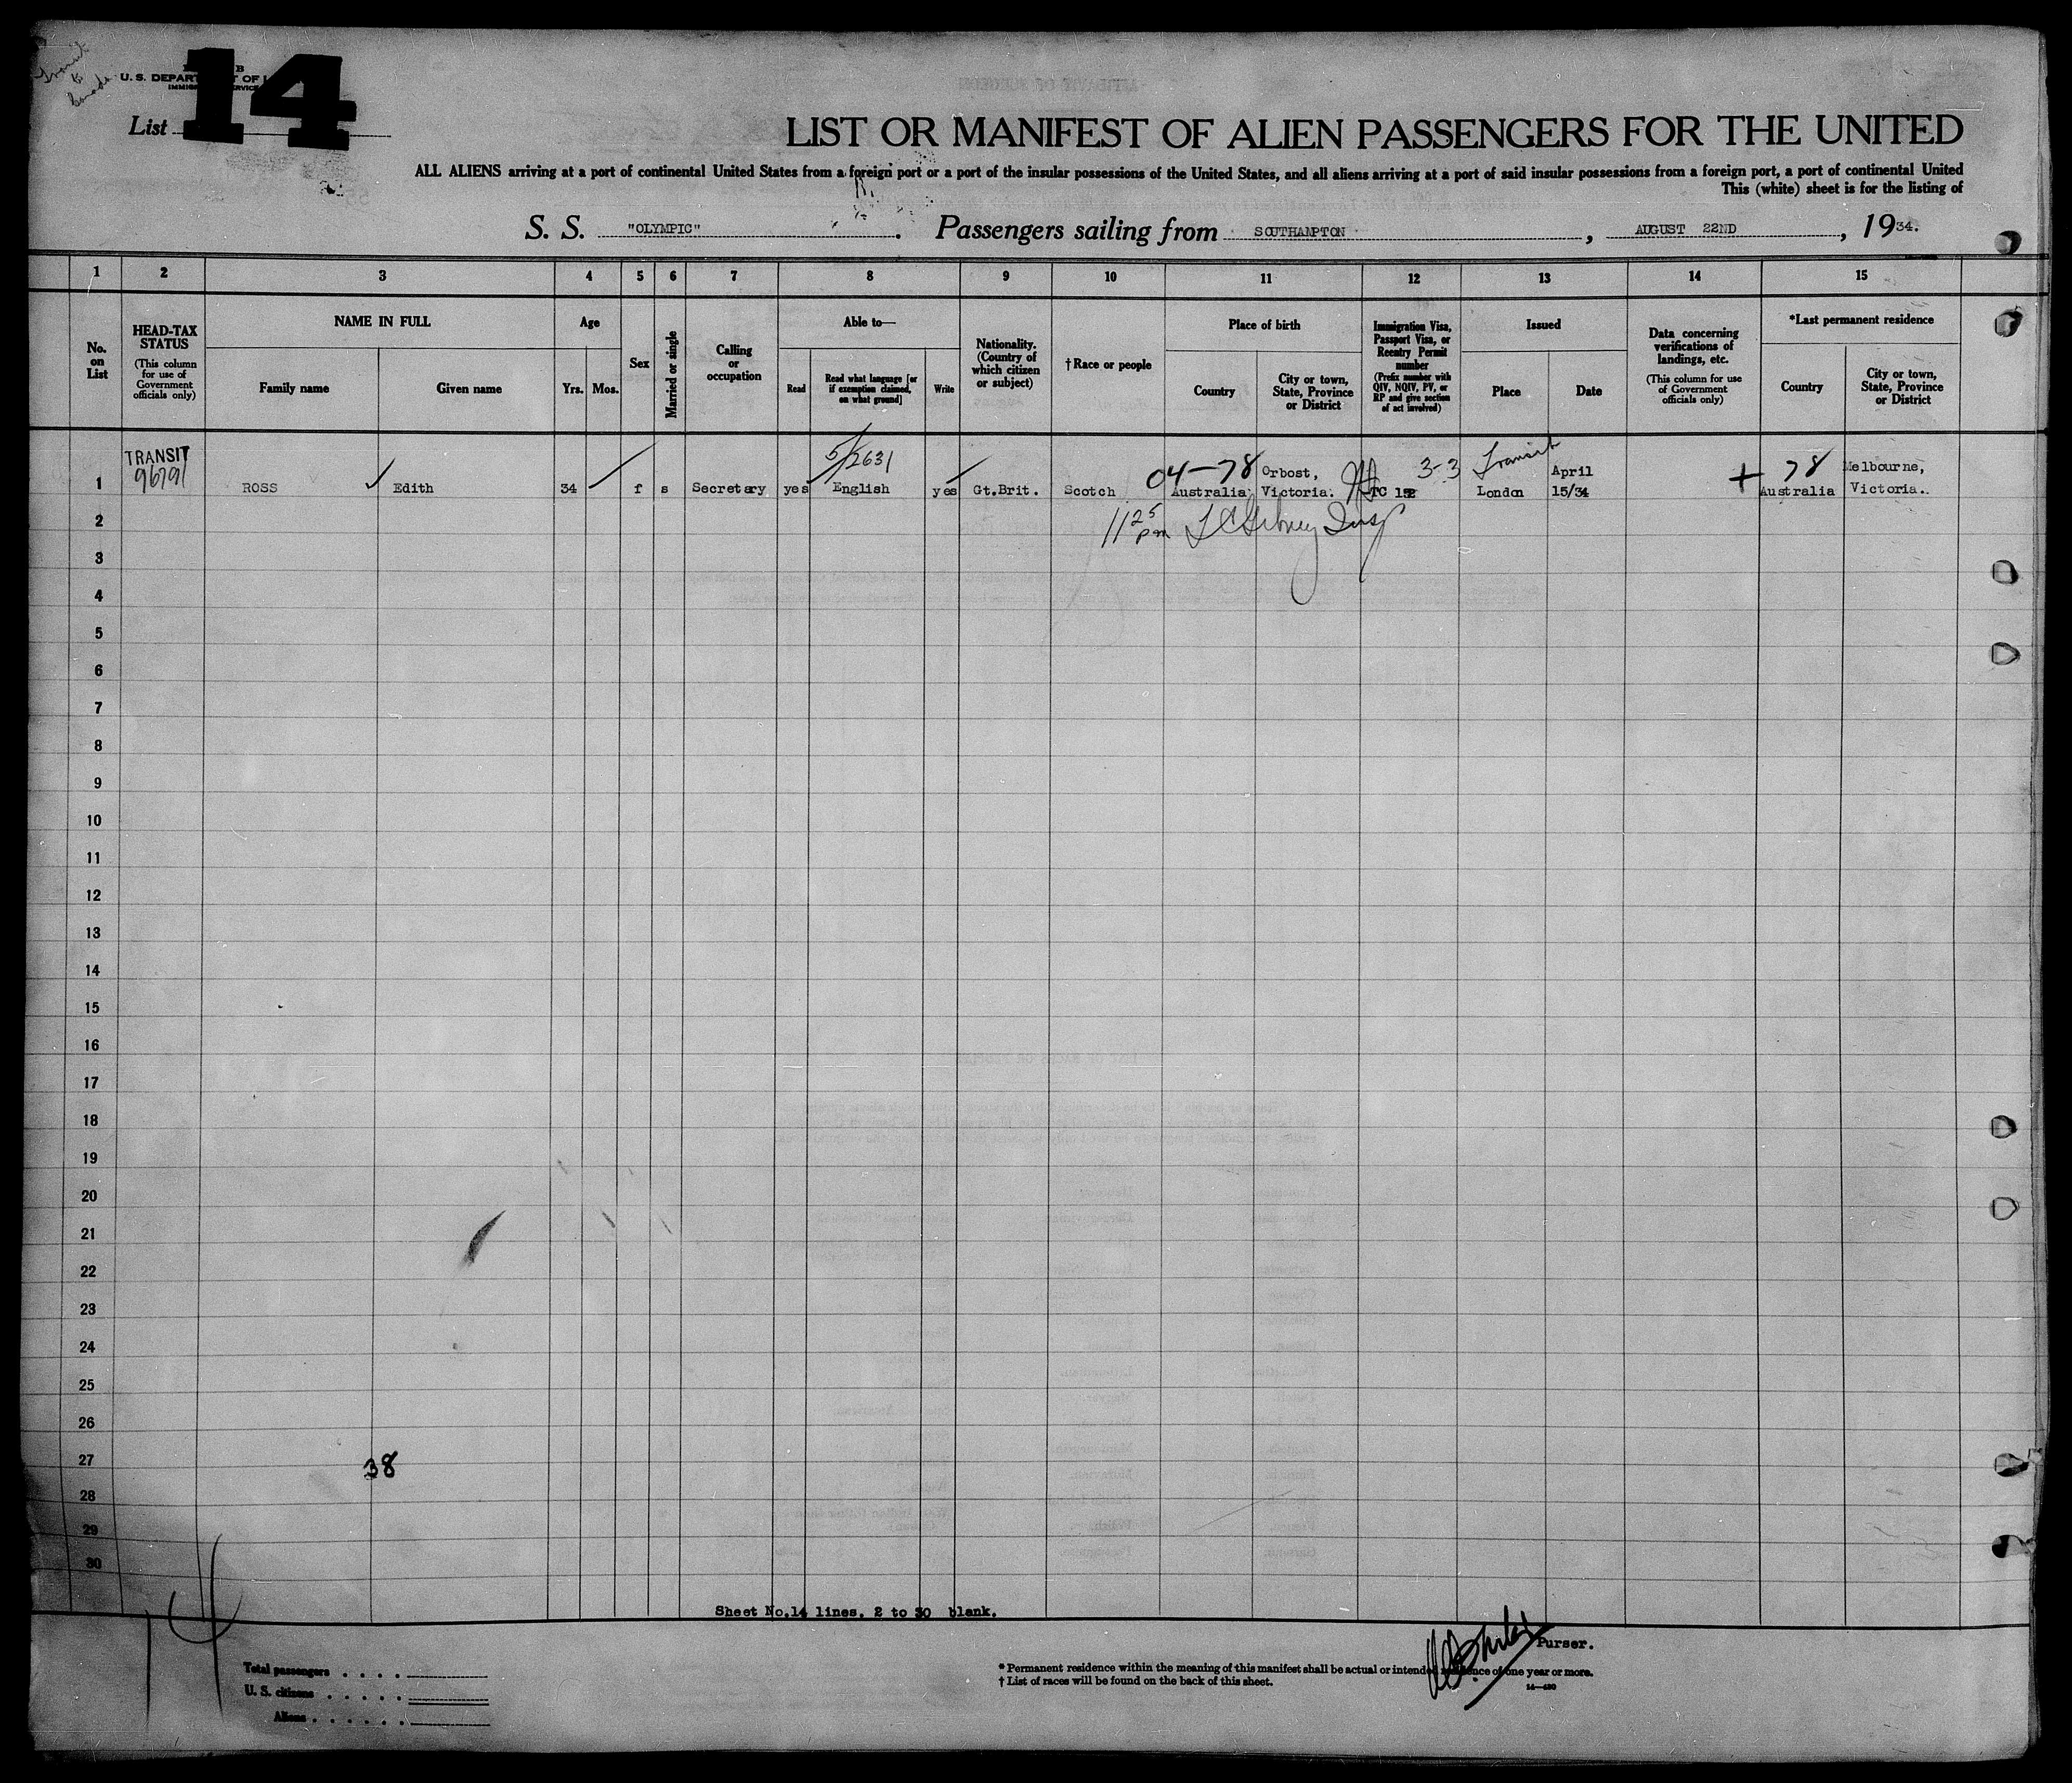 Transit
to
Canada
B
U. S. DEPART OF
IMMIG SERVICE
List 14
LIST OR MANIFEST OF ALIEN PASSENGERS FOR THE UNITED
ALL ALIENS arriving at a port of continental United States from a foreign port or a port of the insular possessions of the United States, and all aliens arriving at a port of said insular possessions from a foreign port, a port of continental United
This (white) sheet is for the listing of
S. S. "OLYMPIC". Passengers sailing from SOUTHAMPTON, AUGUST 22ND, 1934.
1 2 3 4 5 6 7 8 9 10 11 12 13 14 15
No. on List
HEAD-TAX STATUS
(This column for use of Government officials only)
NAME IN FULL
Family name
Given name
Age
Yrs. Mos.
Sex
Married or single
Calling or occupation
Able to—
Read
Read what language [or if exemption claimed, on what ground]
Write
Nationality. (Country of which citizen or subject)
†Race or people
Place of birth
Country
City or town, State, Province or District
Immigration Visa, Passport Visa, or Reentry Permit number
(Prefix number with QIV, NQIV, PV, or RP and give section of act involved)
Issued
Place
Date
Data concerning verifications of landings, etc.
(This column for use of Government officials only)
*Last permanent residence
Country
City or town, State, Province or District
TRANSIT
96791
5/2631
04-78
3-3
Transit
78
1 ROSS Edith 34 f s Secretary yes English yes Gt.Brit. Scotch Australia Orbost, Victoria. London April 15/34 Australia Melbourne, Victoria.
11 25 pm
2
3
4
5
6
7
8
9
10
11
12
13
14
15
16
17
18
19
20
21
22
23
24
25
26
27
38
28
29
30
14
Sheet No.14 lines. 2 to 30 blank.
Purser.
Total passengers
U. S. citizens
Aliens
* Permanent residence within the meaning of this manifest shall be actual or intended residence of one year or more.
† List of races will be found on the back of this sheet.
14—420